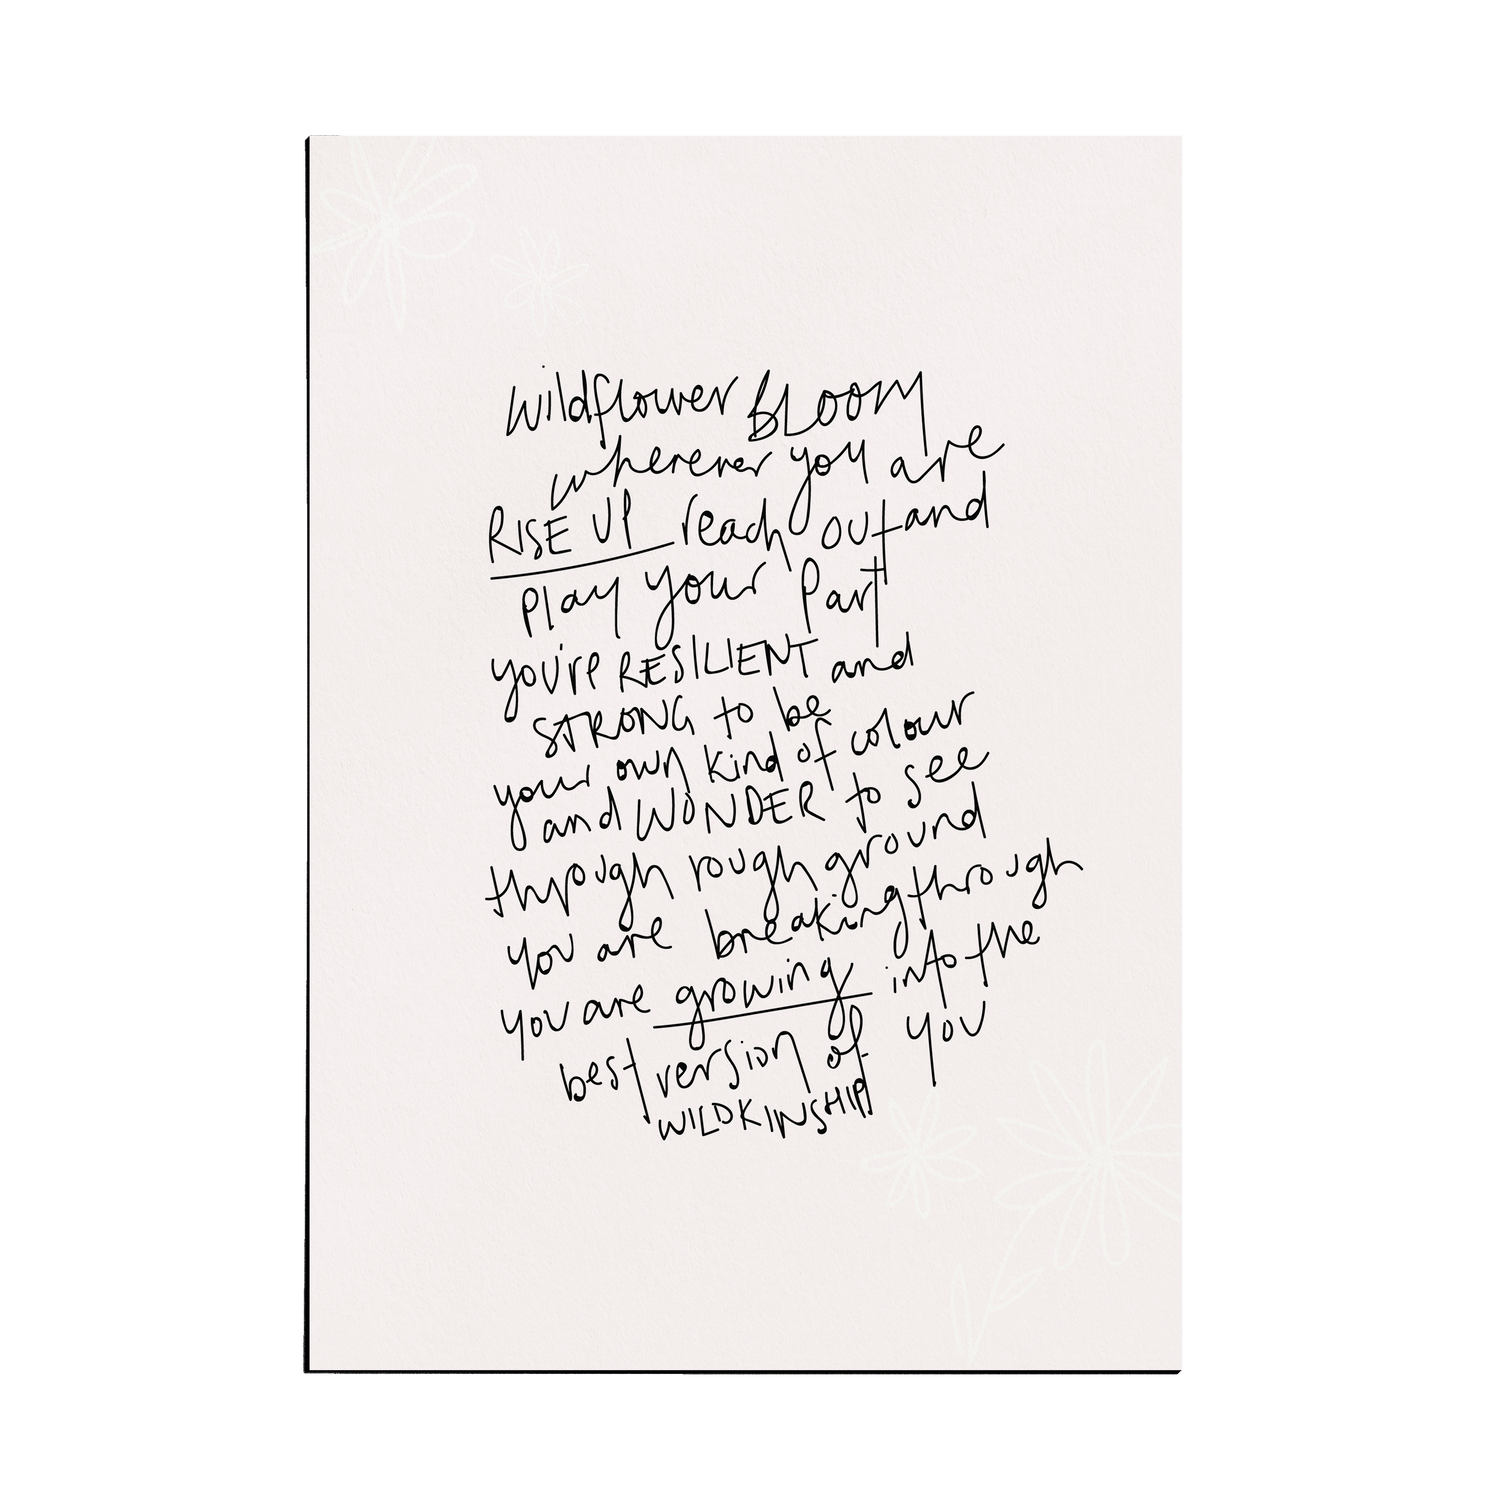 wildflower BLOOM
wherever you are
RISE UP reach out and
play your part
you're RESILIENT and
STRONG to be
your own kind of colour
and WONDER to see
through rough ground
you are breaking through
you are growing into the
best version of you
WILDKINSHIP